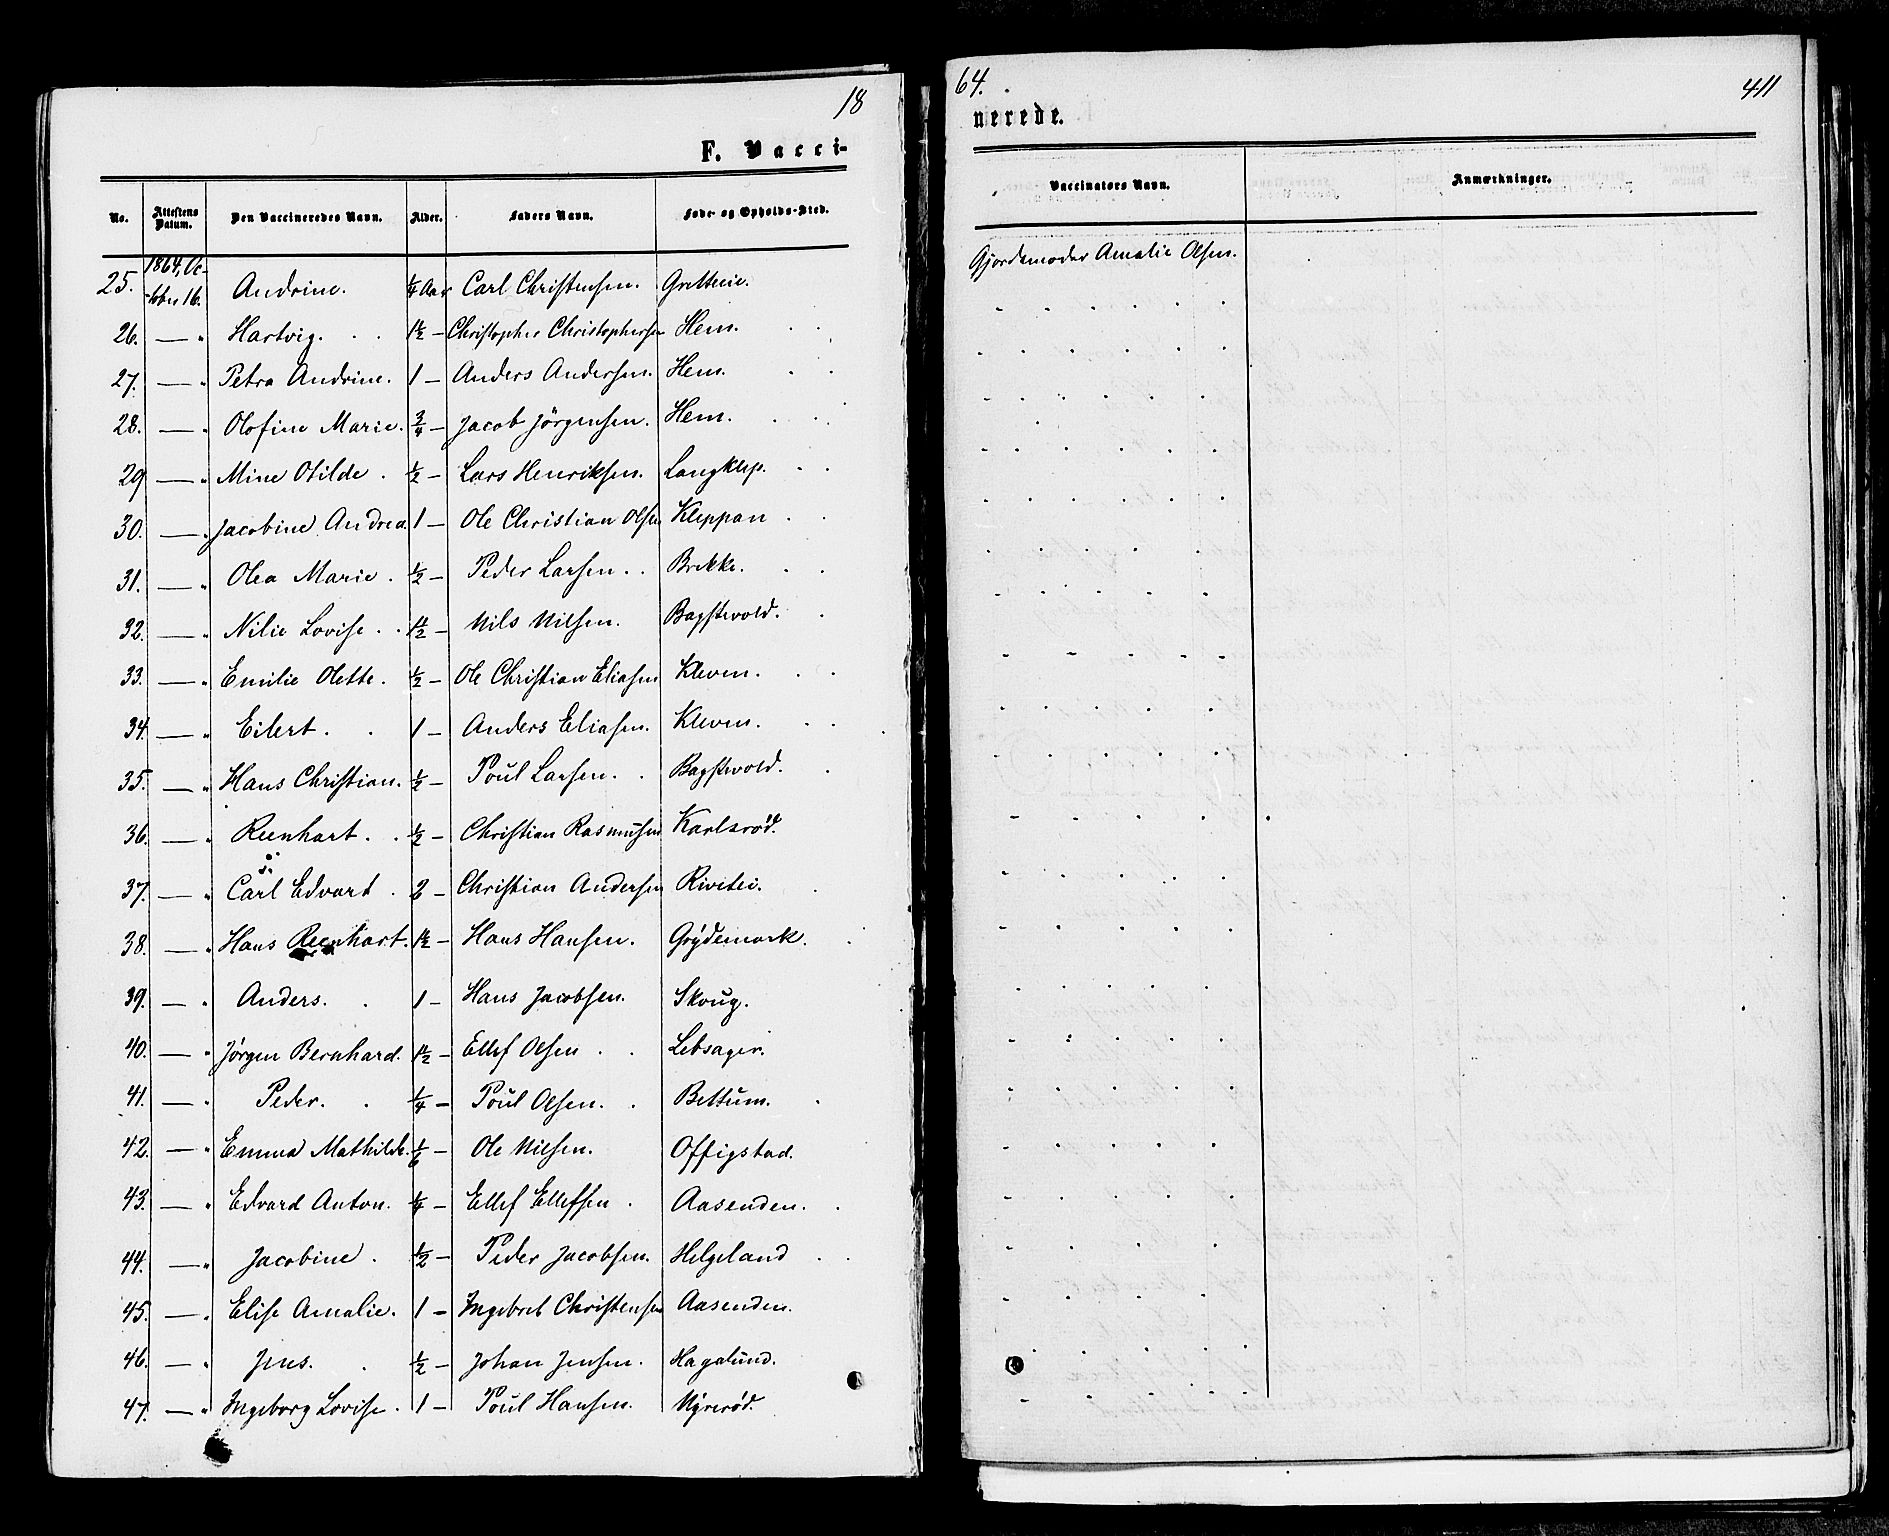 18
F. Vacci-
No. Attestens Datum. Den Vaccineredes Navn. Alder. Faders Navn. Føde- og Opholds-Sted.
1864, Oc-
25. -tober 16. Andrine. 1/4 Aar Carl Christensen. Gretteie.
26. — " Hartvig. 1 1/2 — Christopher Christophersen Hem.
27. — " Petra Andrine. 1 — Anders Andersen. Hem.
28. — " Olofine Marie. 3/4 — Jacob Jörgensen. Hem.
29 — " Mine Otilde. 1/2 — Lars Henriksen. Langklep.
30. — " Jacobine Andrea. 1 — Ole Christian Olsen Kleppan
31. — " Olea Marie. 1/2 — Peder Larsen. Brekke.
32. — " Nilie Lovise. 1 1/2 — Nils Nilsen. Bagstevold.
33. — " Emilie Olette. 1/2 — Ole Christian Eliasen Kleven.
34. — " Eilert. 1 — Anders Eliasen. Kleven.
35. — " Hans Christian. 1/2 — Poul Larsen. Bagstevold.
36. — " Reenhart. 1/2 — Christian Rasmusen Karlsrød.
37. — " Carl Edvart. 2 — Christian Andersen Rivetei.
38. — " Hans Reenhart. 1 1/2 — Hans Hansen. Grydemork.
39. — " Anders. 1 — Hans Jacobsen. Skoug.
40. — " Jørgen Bernhard. 1 1/2 — Ellef Olsen Lebsager.
41. — " Peder. 1/4 — Poul Olsen. Bettum.
42. — " Emma Mathilde. 1/6 — Ole Nilsen. Offigstad.
43. — " Edvard Anton. 1/4 — Ellef Ellefsen Aasenden.
44. — " Jacobine. 1/2 — Peder Jacobsen. Helgeland
45. — " Elise Amalie. 1 — Ingebret Christensen Aasenden.
46. — " Jens. 1/2 — Johan Jensen. Hagalund.
47. — " Ingeborg Lovise. 1 — Poul Hansen. Myrerød.
64. 411
nerede.
Vaccinatørs Navn. Anmærkninger.
Gjordemoder Amalie Olsen.